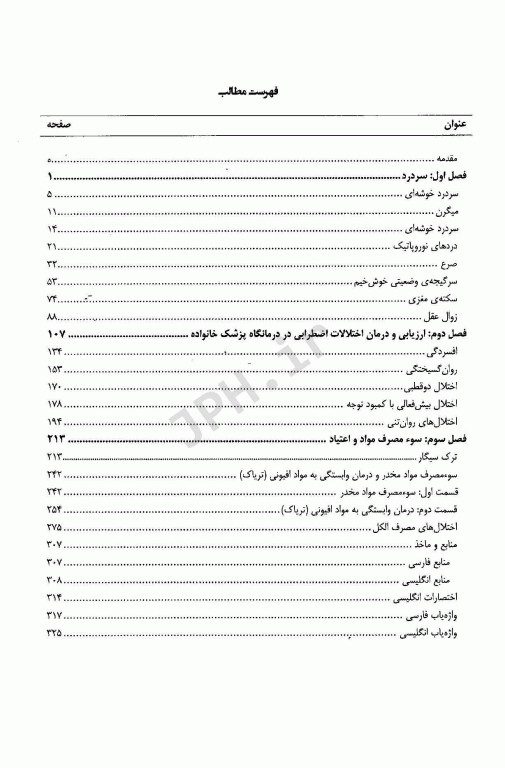 فهرست مطالب
عنوان صفحه
مقدمه ........ ۵
فصل اول: سردرد ........ ۱
سردرد خوشه‌ای ........ ۵
میگرن ........ ۱۱
سردرد خوشه‌ای ........ ۱۴
دردهای نوروپاتیک ........ ۲۱
صرع ........ ۳۲
سرگیجه‌ی وضعیتی خوش‌خیم ........ ۵۳
سکته‌ی مغزی ........ ۷۴
زوال عقل ........ ۸۸
فصل دوم: ارزیابی و درمان اختلالات اضطرابی در درمانگاه پزشک خانواده ........ ۱۰۷
افسردگی ........ ۱۳۴
روان‌گسیختگی ........ ۱۵۳
اختلال دوقطبی ........ ۱۷۰
اختلال بیش‌فعالی با کمبود توجه ........ ۱۷۸
اختلال‌های روان‌تنی ........ ۱۹۴
فصل سوم: سوء مصرف مواد و اعتیاد ........ ۲۱۳
ترک سیگار ........ ۲۱۳
سوءمصرف مواد مخدر و درمان وابستگی به مواد افیونی (تریاک) ........ ۲۴۲
قسمت اول: سوءمصرف مواد مخدر ........ ۲۴۲
قسمت دوم: درمان وابستگی به مواد افیونی (تریاک) ........ ۲۵۴
اختلال‌های مصرف الکل ........ ۲۷۵
منابع و ماخذ ........ ۳۰۷
منابع فارسی ........ ۳۰۷
منابع انگلیسی ........ ۳۰۸
اختصارات انگلیسی ........ ۳۱۴
واژه‌یاب فارسی ........ ۳۱۷
واژه‌یاب انگلیسی ........ ۳۲۵
JPH.ir